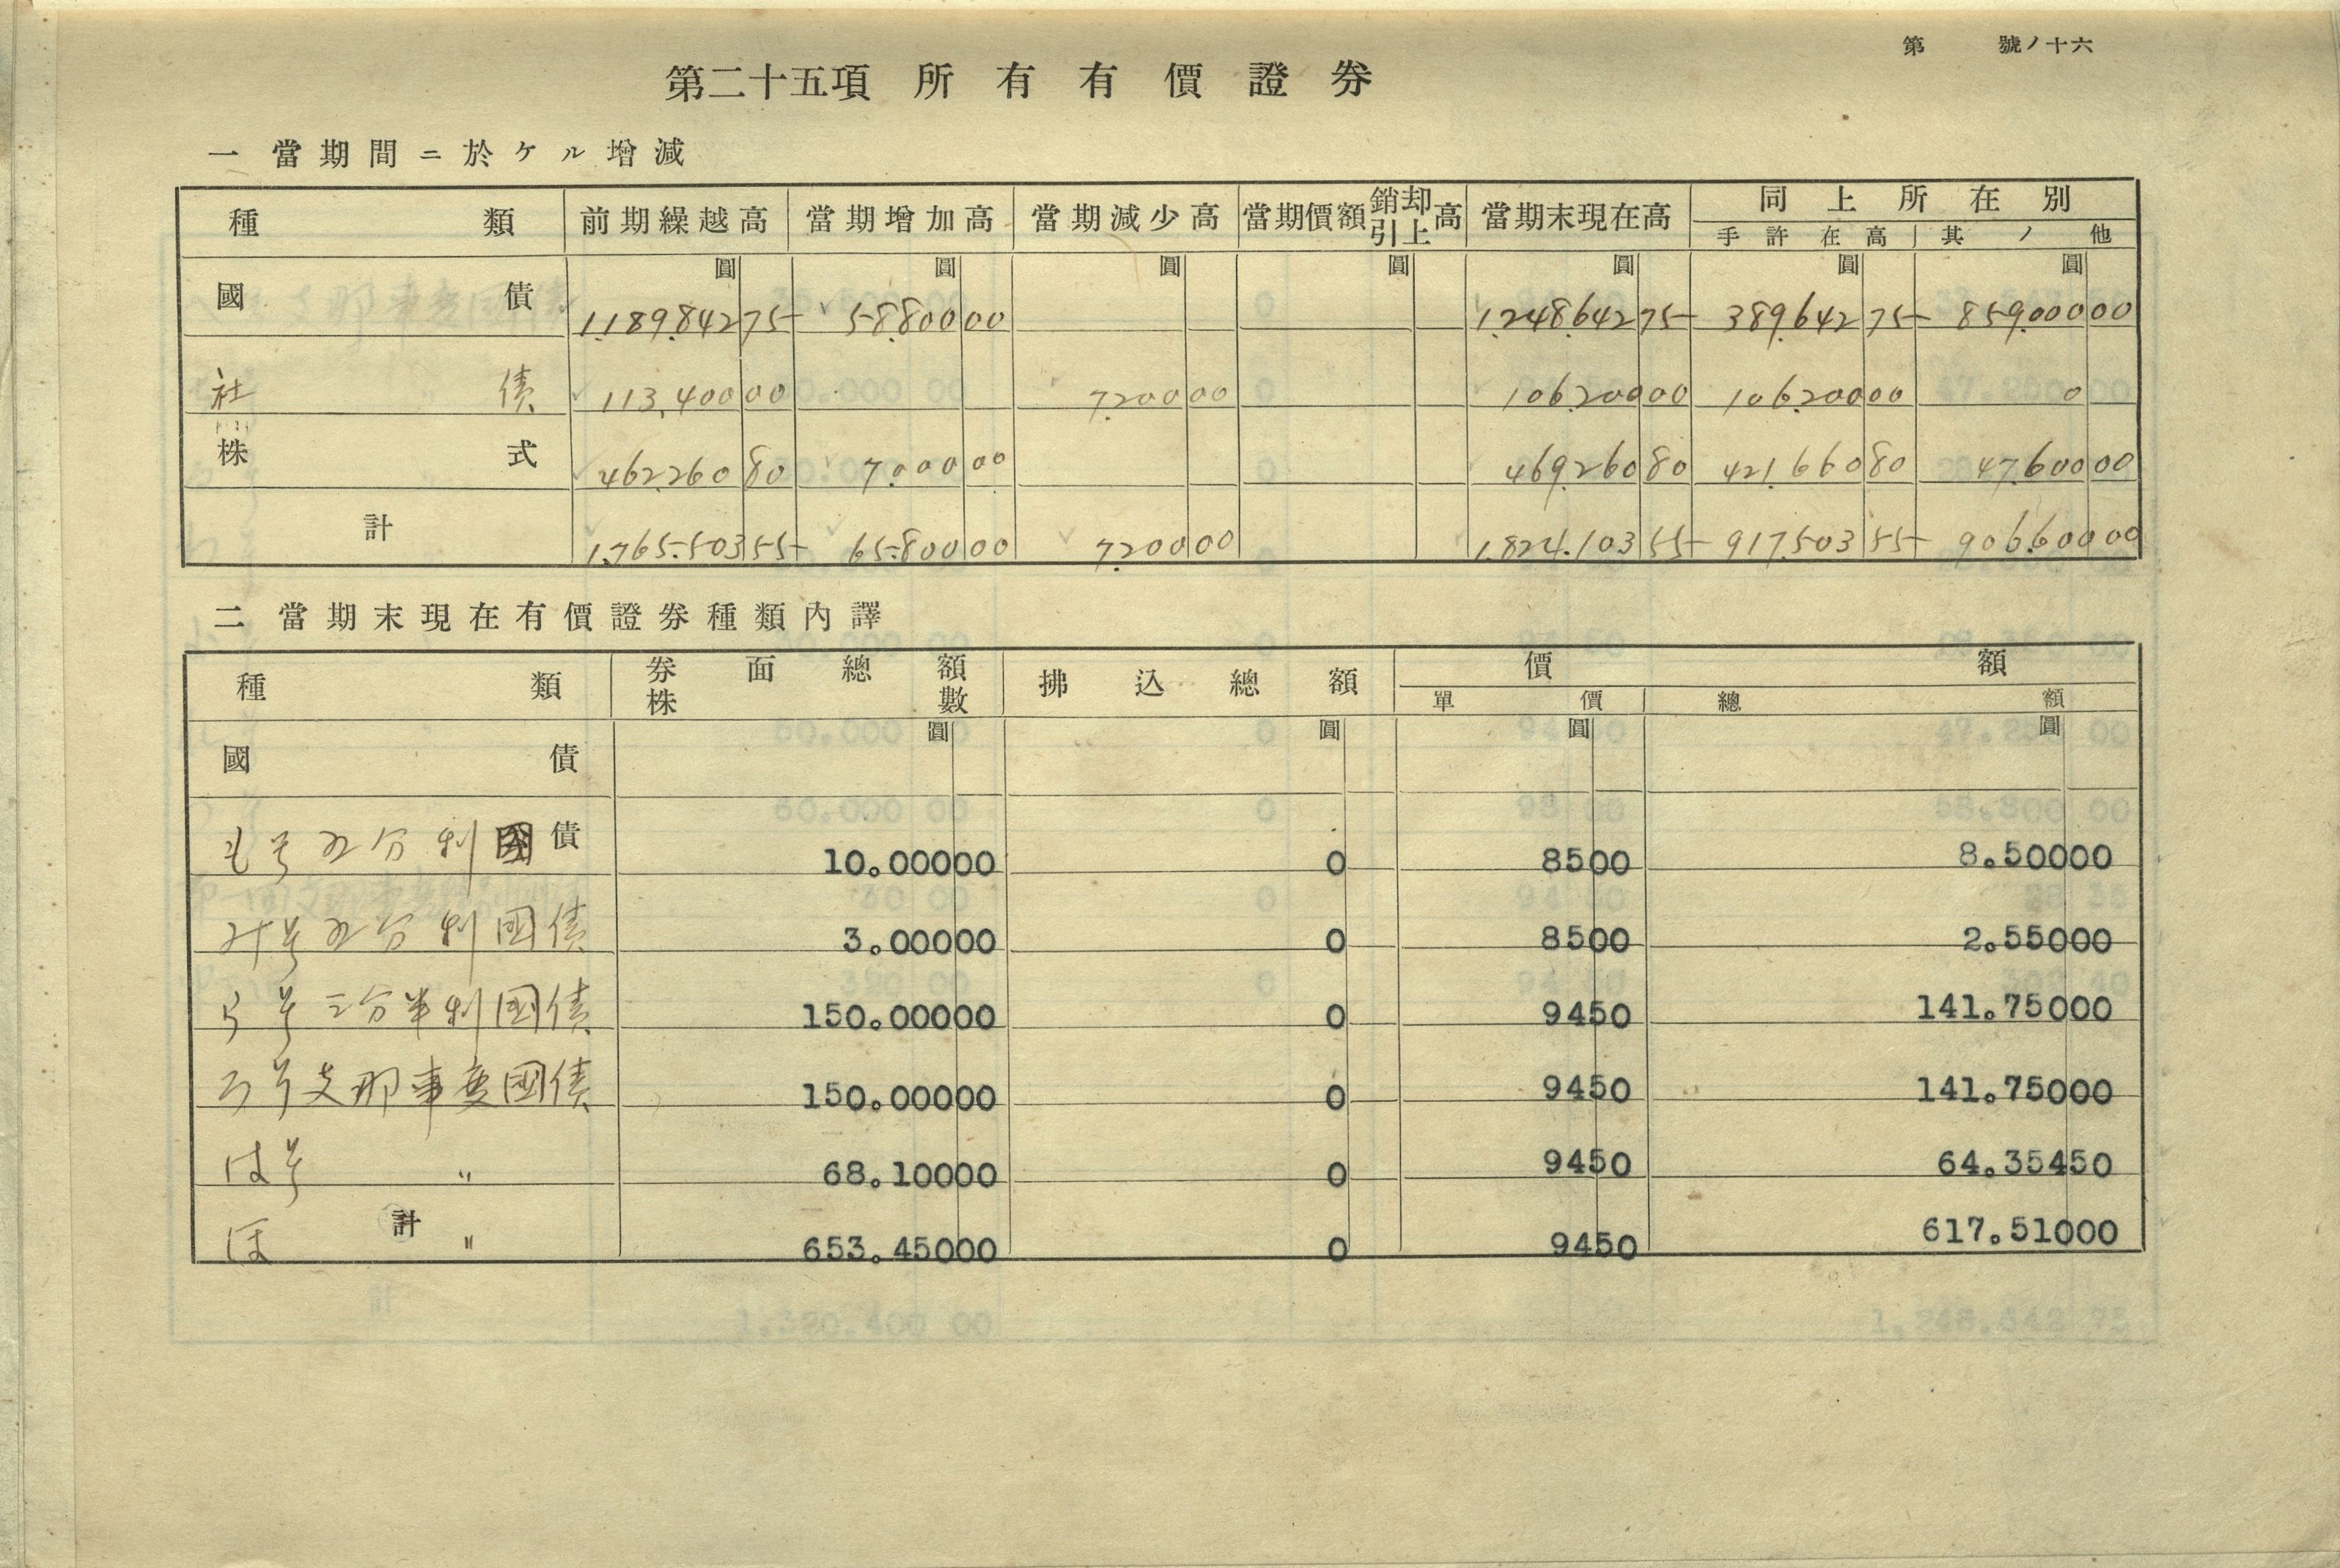 第 號ノ十六
第二十五項 所有有價證券
一 當期間ニ於ケル增減
種類 前期繰越高 當期增加高 當期減少高 當期價額銷却引上高 當期末現在高 同上所在別
手許在高 其ノ他
圓 圓 圓 圓 圓 圓 圓
國債 1.189.842 75 58.800 00 1.248.642 75 389.642 75 859.000 00
社債 113.400 00 7.200 00 106.200 00 106.200 00 0
株式 462.260 80 7.000 00 469.260 80 421.660 80 47.600 00
計 1.765.503 55 65.800 00 7.200 00 1.824.103 55 917.503 55 906.600 00
二 當期末現在有價證券種類內譯
種類 券面總額 株數 拂込總額 價額
單價 總額
圓 圓 圓 圓
國債
も号五分利國債 10.000 00 0 85 00 8.500 00
み号五分利國債 3.000 00 0 85 00 2.550 00
号三分半利國債 150.000 00 0 94 50 141.750 00
ろ号支那事変國債 150.000 00 0 94 50 141.750 00
は号 〃 68.100 00 0 94 50 64.354 50
ほ 計 〃 653.450 00 0 94 50 617.510 00